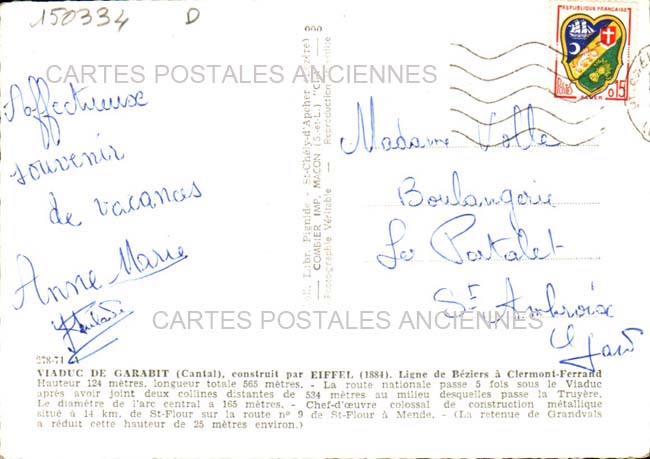 150334 D
RÉPUBLIQUE FRANÇAISE
POSTES
0,15
ALGER
CARTES POSTALES ANCIENNES
Affectueux
souvenir
de vacances
Anne Marie
Madame
Boulangerie
Le Portalet
St Ambroix
Gard
COMBIER IMP. MACON (S.-et-L.)
Photographie Véritable - Reproduction
CARTES POSTALES ANCIENNES
278-71 A
VIADUC DE GARABIT (Cantal), construit par EIFFEL (1884). Ligne de Béziers à Clermont-Ferrand
Hauteur 124 mètres, longueur totale 565 mètres. - La route nationale passe 5 fois sous le Viaduc
après avoir joint deux collines distantes de 534 mètres au milieu desquelles passe la Truyère.
Le diamètre de l'arc central a 165 mètres. - Chef-d'œuvre colossal de construction métallique
situé à 14 km. de St-Flour sur la route nº 9 de St-Flour à Mende. - (La retenue de Grandvals
a réduit cette hauteur de 25 mètres environ.)